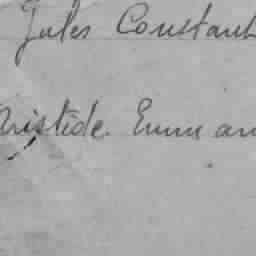 Jules Constant
Aristide. Emman